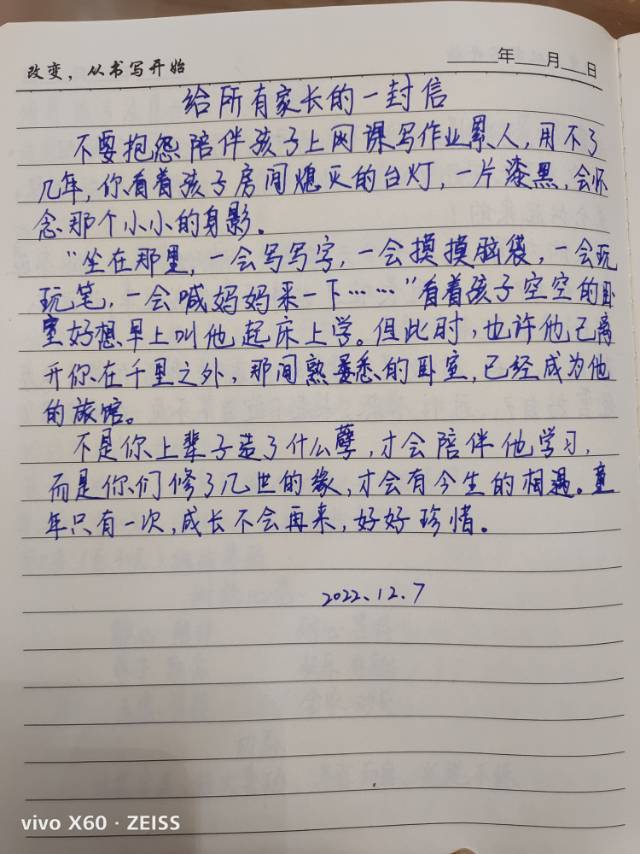 改变，从书写开始
年 月 日
给所有家长的一封信
不要抱怨陪伴孩子上网课写作业累人，用不了
几年，你看着孩子房间熄灭的台灯，一片漆黑，会怀
念那个小小的身影。
“坐在那里，一会写写字，一会摸摸脑袋，一会玩
玩笔，一会喊妈妈来一下……”看着孩子空空的卧
室好想早上叫他起床上学。但此时，也许他已离
开你在千里之外，那间熟悉的卧室，已经成为他
的旅馆。
不是你上辈子造了什么孽，才会陪伴他学习，
而是你们修了几世的缘，才会有今生的相遇。童
年只有一次，成长不会再来，好好珍惜。
2022.12.7
vivo X60 · ZEISS